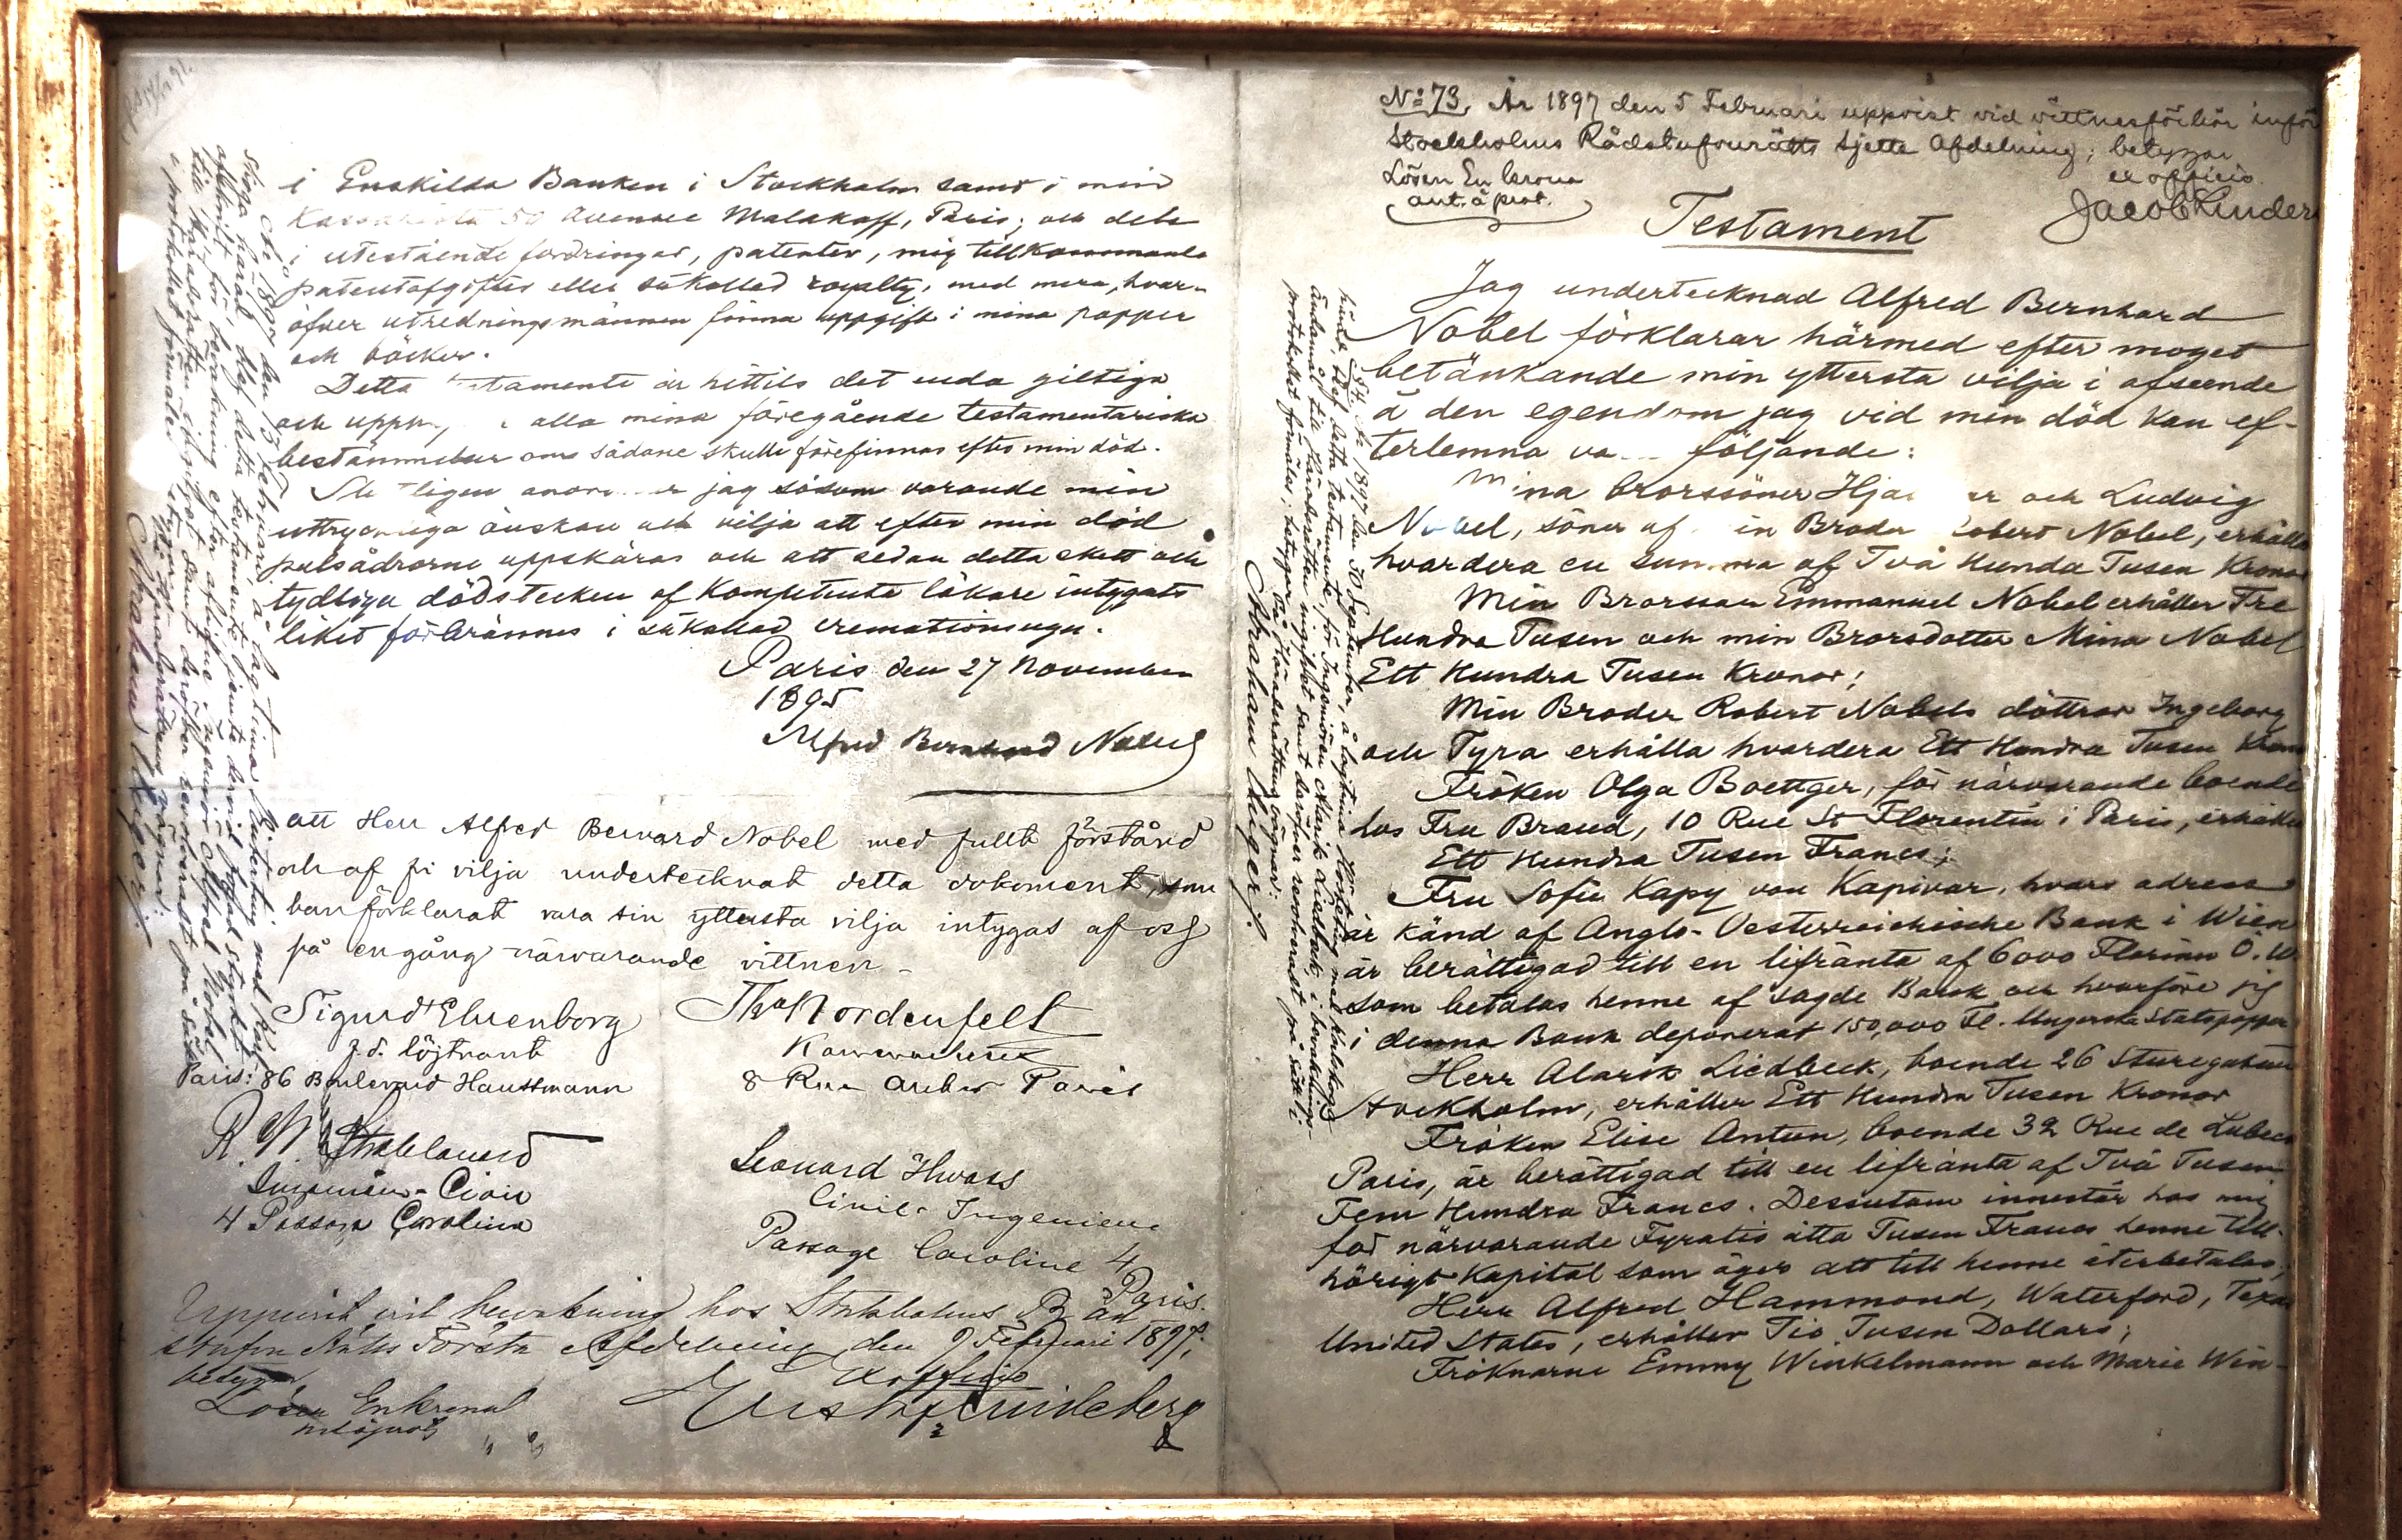 i Enskilda Banken i Stockholm samt i min
Kassakista 59 Avenue Malakoff, Paris; och dels
i utestående fordringar, patenter, mig tillkommande
patentafgifter eller såkallad royalty, med mera, hvar-
öfver utredningsmännen finna uppgift i mina papper
och böcker.
Detta testamente är hittils det enda giltiga
och upph alla mina föregående testamentariska
bestämmelser om sådane skulle förefinnas efter min död.
Slutligen anordnar jag såsom varande min
uttryckliga önskan och vilja att efter min död
pulsådrorna uppskäras och att sedan detta skett och
tydliga dödstecken af Kompetenta läkare intygats
liket förbrännes i såkallad cremationsugn.
Paris den 27 November
1895
Alfred Bernhard Nobel
att Herr Alfred Bernard Nobel med fullt förstånd
och af fri vilja undertecknat detta dokument, som
han förklarat vara sin yttersta vilja intygas af oss
på en gång närvarande vittnen –
Sigurd Ehrenborg
f.d. löjtnant
Paris: 86 Boulevard Haussmann
Thos Nordenfelt
8 Rue Auber Paris
R. W. Strehlenert
Ingeniör-Civil
4 Passage Caroline
Leonard Hwass
Civil-Ingeniör
Passage Caroline 4
Paris.
Uppvist vid bevakning hos Stockholms Råd-
stufvu Rätts Första Afdelning den 9 Februari 1897;
betygar
Ex officio
Lösen En krona
No 73. År 1897 den 5 Februari uppvist vid vittnesförhör inför
Stockholms Rådstufvurätts sjette Afdelning; betygar
ex officio
Lösen En krona
ant. å prot.
Jacob Linders
Testament
Jag undertecknad Alfred Bernhard
Nobel förklarar härmed efter moget
betänkande min yttersta vilja i afseende
å den egendom jag vid min död kan ef-
terlemna va följande:
Mina brorssöner Hjalmar och Ludvig
Nobel, söner af min Broder Robert Nobel, erhålla
hvardera en summa af Två Hundra Tusen Kronor
Min Brorsson Emmanuel Nobel erhåller Tre
Hundra Tusen och min Brorsdotter Mina Nobel
Ett Hundra Tusen Kronor;
Min Broder Robert Nobels döttrar Ingeborg
och Tyra erhålla hvardera Ett Hundra Tusen Kronor
Fröken Olga Boettger, för närvarande boende
hos Fru Brand, 10 Rue St Florentin i Paris, erhåller
Ett Hundra Tusen Francs;
Fru Sofie Kapy von Kapivar, hvars adress
är känd af Anglo-Oesterreichische Bank i Wien
är berättigad till en lifränta af 6000 Florins Ö.W.
som betalas henne af sagde Bank och hvarföre jag
i denna Bank deponerat 150,000 Fl. Ungerska Statspapper
Herr Alarik Liedbeck, boende 26 Sturegatan
Stockholm, erhåller Ett Hundra Tusen Kronor
Fröken Elise Antun, boende 32 Rue de Lubeck
Paris, är berättigad till en lifränta af Två Tusen
Fem Hundra Francs. Dessutom innestår hos mig
för närvarande Fyratio åtta Tusen Francs henne till-
hörigt Kapital som äger att till henne återbetalas;
Herr Alfred Hammond, Waterford, Texas
United States, erhåller Tio Tusen Dollars;
Fröknarne Emmy Winkelmann och Marie Win-
Abraham Unger